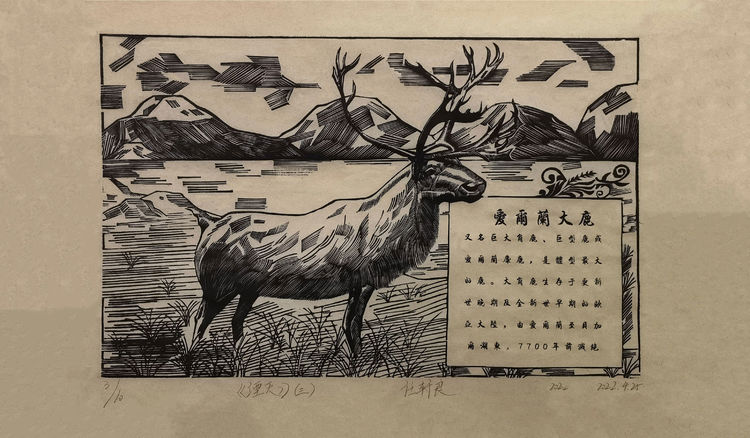 愛爾蘭大鹿
又名巨大角鹿、巨型鹿或
愛爾蘭麋鹿，是體型最大
的鹿。大角鹿生存于更新
世晚期及全新世早期的歐
亞大陸，由愛爾蘭至貝加
爾湖東，7700年前滅絕
(三) 2022.4.25